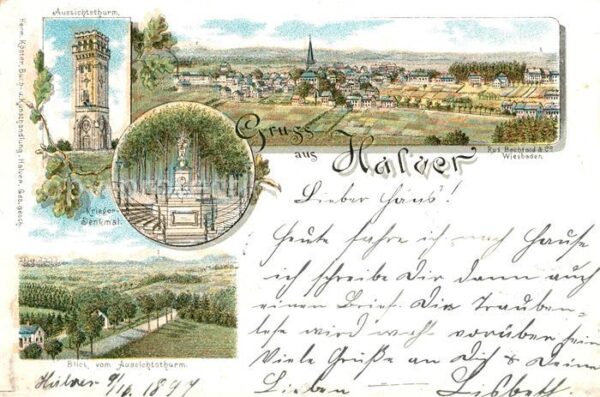 Aussichtsturm.
Herm. Köster, Buch- u. Kunsthandlung, Halver. Ges. gesch.
Gruss
aus
Halver
Rud. Bechtold & Co.
Wiesbaden.
Krieger-
Denkmal.
Blick vom Aussichtsturm.
Lieber Hans!
Heute fahre ich nach Hause
ich schreibe Dir dann auch
einen Brief. Die Trauben-
lese wird wohl vorüber sein
Viele Grüße an Dich & Deine
Lieben — Lisbeth.
Halver 9/10. 1897